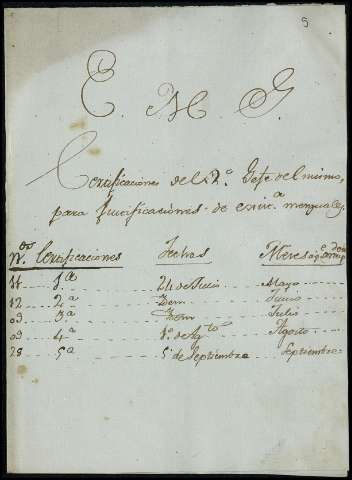 9
E. M. G.
Certificaciones del 2.º Gefe del mismo,
para justificaciones de exix.ª mensuales.
N.os Certificaciones Fechas Meses
11 1.ª 24 de Julio Mayo
12 2.ª Idem Junio
03 3.ª Idem Julio
09 4.ª 1.º de Ag.to Agosto
28 5.ª 5 de Septiembre Septiembre